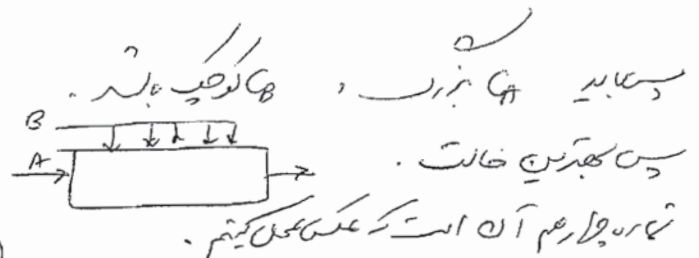 پس باید C_A بزرگ و C_B کوچک باشد.
B
A
پس بهترین حالت.
آن است که عکس عمل کنیم.